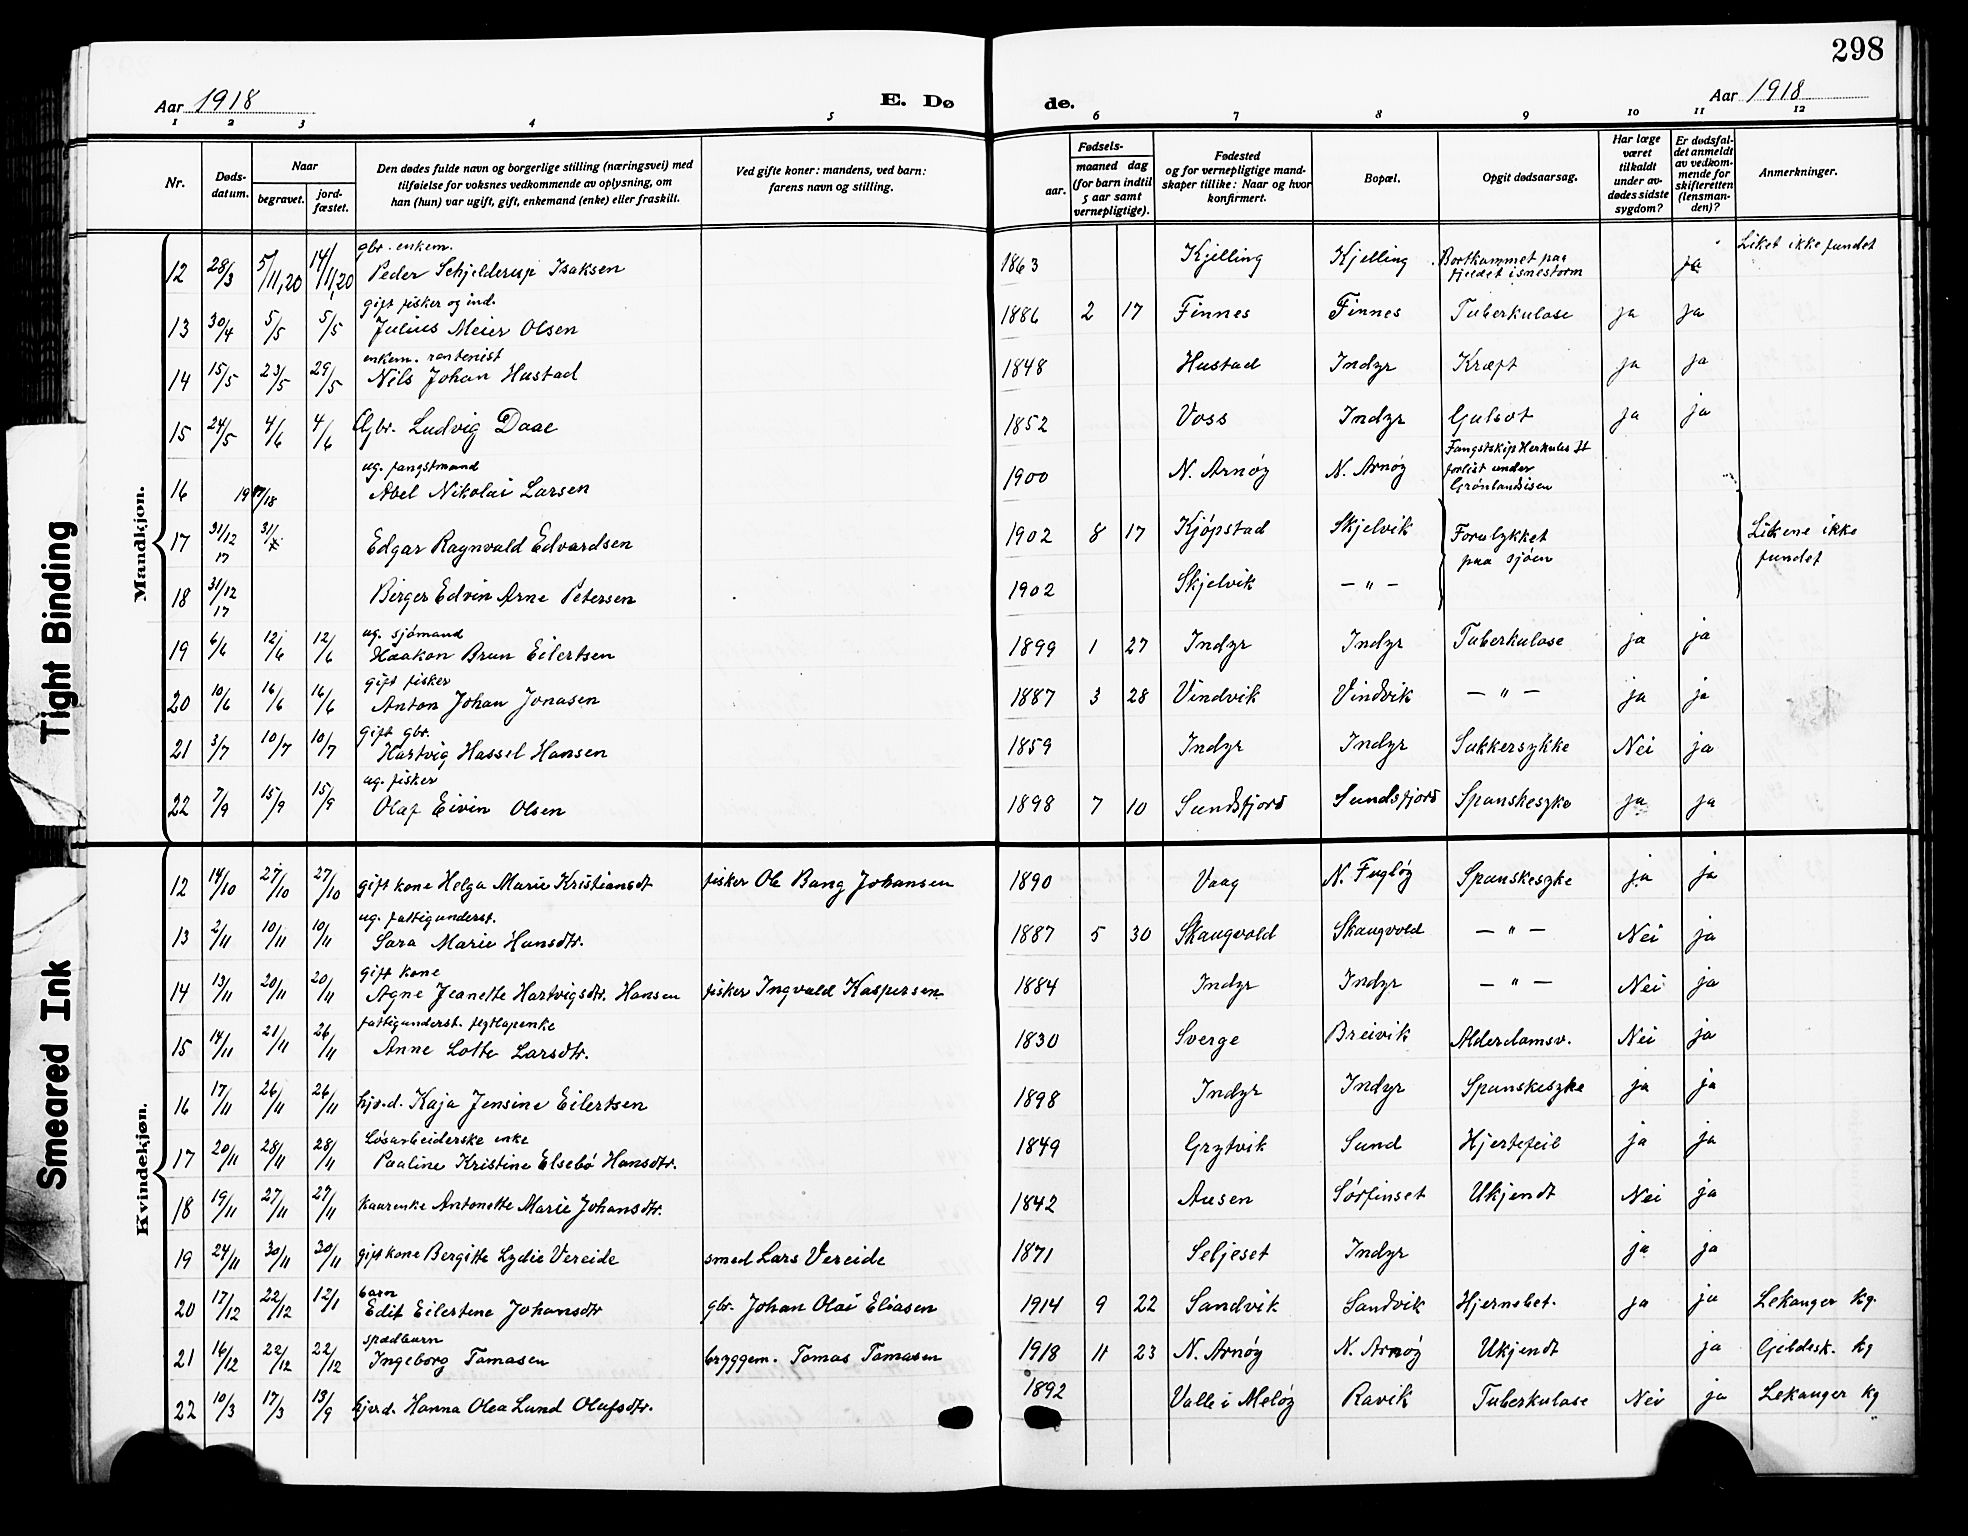 298
Aar 1918
E. Dø
de.
Aar 1918
1 2 3 4 5 6 7 8 9 10 11 12
Nr.
Dødsdatum.
Naar
begravet.
jordfæstet.
Den dødes fulde navn og borgerlige stilling (næringsvei) med
tilføielse for voksnes vedkommende av oplysning, om
han (hun) var ugift, gift, enkemand (enke) eller fraskilt.
Ved gifte koner: mandens, ved barn:
farens navn og stilling.
Fødsels-
aar.
maaned dag
(for barn indtil
5 aar samt
vernepligtige).
Fødested
og for vernepligtige mand-
skaper tillike: Naar og hvor
konfirmert.
Bopæl.
Opgit dødsaarsag.
Har læge
været
tilkaldt
under av-
dødes sidste
sygdom?
Er dødsfal-
det anmeldt
av vedkom-
mende for
skifteretten
(lensman-
den)?
Anmerkninger.
Mandkjøn.
gbr. enkem.
12 28/3 5/11,20 14/11,20 Peder Schjelderup Isaksen 1863 Kjelling Kjelling Bortkommet paa fjeldet i snestorm ja Liket ikke fundet
gift fisker og ind.
13 30/4 5/5 5/5 Julius Meier Olsen 1886 2 17 Finnes Finnes Tuberkulose ja ja
enkem. rentenist
14 15/5 23/5 29/5 Nils Johan Hustad 1848 Hustad Indyr Kræft ja ja
15 24/5 4/6 4/6 Gbr. Ludvig Daae 1852 Voss Indyr Gulsot ja ja
ug. fangstmand
16 19 17/18 Abel Nikolai Larsen 1900 N. Arnøy N. Arnøy Fangstskip Herkules forlist under Grønlandsisen
17 31/12 17 31/ Edgar Ragnvald Edvardsen 1902 8 17 Kjøpstad Skjelvik Forulykket paa sjøen Likene ikke fundet
18 31/12 17 Birger Edvin Arne Petersen 1902 Skjelvik — " —
ug. sjømand
19 6/6 12/6 12/6 Haakon Brun Eilertsen 1899 1 27 Indyr Indyr Tuberkulose ja ja
gift fisker
20 10/6 16/6 16/6 Anton Johan Jonasen 1887 3 28 Vindvik Vindvik — " — ja ja
gift gbr.
21 3/7 10/7 10/7 Hartvig Hassel Hansen 1859 Indyr Indyr Sukkersykke Nei ja
ug. fisker
22 7/9 15/9 15/9 Olaf Eivin Olsen 1898 7 10 Sundsfjord Sundsfjord Spanskesyke ja ja
Kvindekjøn.
12 14/10 27/10 27/10 gift kone Helga Marie Kristiansdt fisker Ole Bang Johansen 1890 Vaag N. Fugløy Spanskesyke ja ja
ug. fattigunderst.
13 2/11 10/11 10/11 Sara Marie Hansdtr. 1887 5 30 Skaugvold Skaugvold — " — Nei ja
gift kone
14 13/11 20/11 20/11 Agne Jeanette Hartvigsdtr. Hansen fisker Ingvald Kaspersen 1884 Indyr Indyr — " — Nei ja
fattigunderst. flytlapenke
15 14/11 21/11 26/11 Anne Lotte Larsdtr. 1830 Sverge Breivik Alderdomsv. Nei ja
16 17/11 26/11 26/11 hj.v.d. Kaja Jensine Eilertsen 1898 Indyr Indyr Spanskesyke ja ja
Løsarbeiderske enke
17 20/11 28/11 28/11 Pauline Kristine Elsebø Hansdtr. 1849 Grytvik Sund Hjertefeil ja ja
18 19/11 27/11 27/11 kaarenke Antonette Marie Johansdtr. 1842 Ausen Sørfinset Ukjendt Nei ja
19 24/11 30/11 30/11 gift kone Bergitte Lydie Vereide smed Lars Vereide 1871 Seljeset Indyr ja ja
barn
20 17/12 22/12 12/1 Edit Eilertine Johansdtr gbr. Johan Olai Eliasen 1914 9 22 Sandvik Sandvik Hjernebet. ja ja Lekanger kg.
spædbarn
21 16/12 22/12 22/12 Ingeborg Tomasen bryggem. Tomas Tomasen 1918 11 23 N. Arnøy N. Arnøy Ukjendt ja Gildesk. kg
22 10/3 17/3 13/9 hjv.d. Hanna Olea Lund Olufsdtr. 1892 Valle i Meløy Ravik Tuberkulose Nei ja Lekanger kg
Tight Binding
Smeared Ink